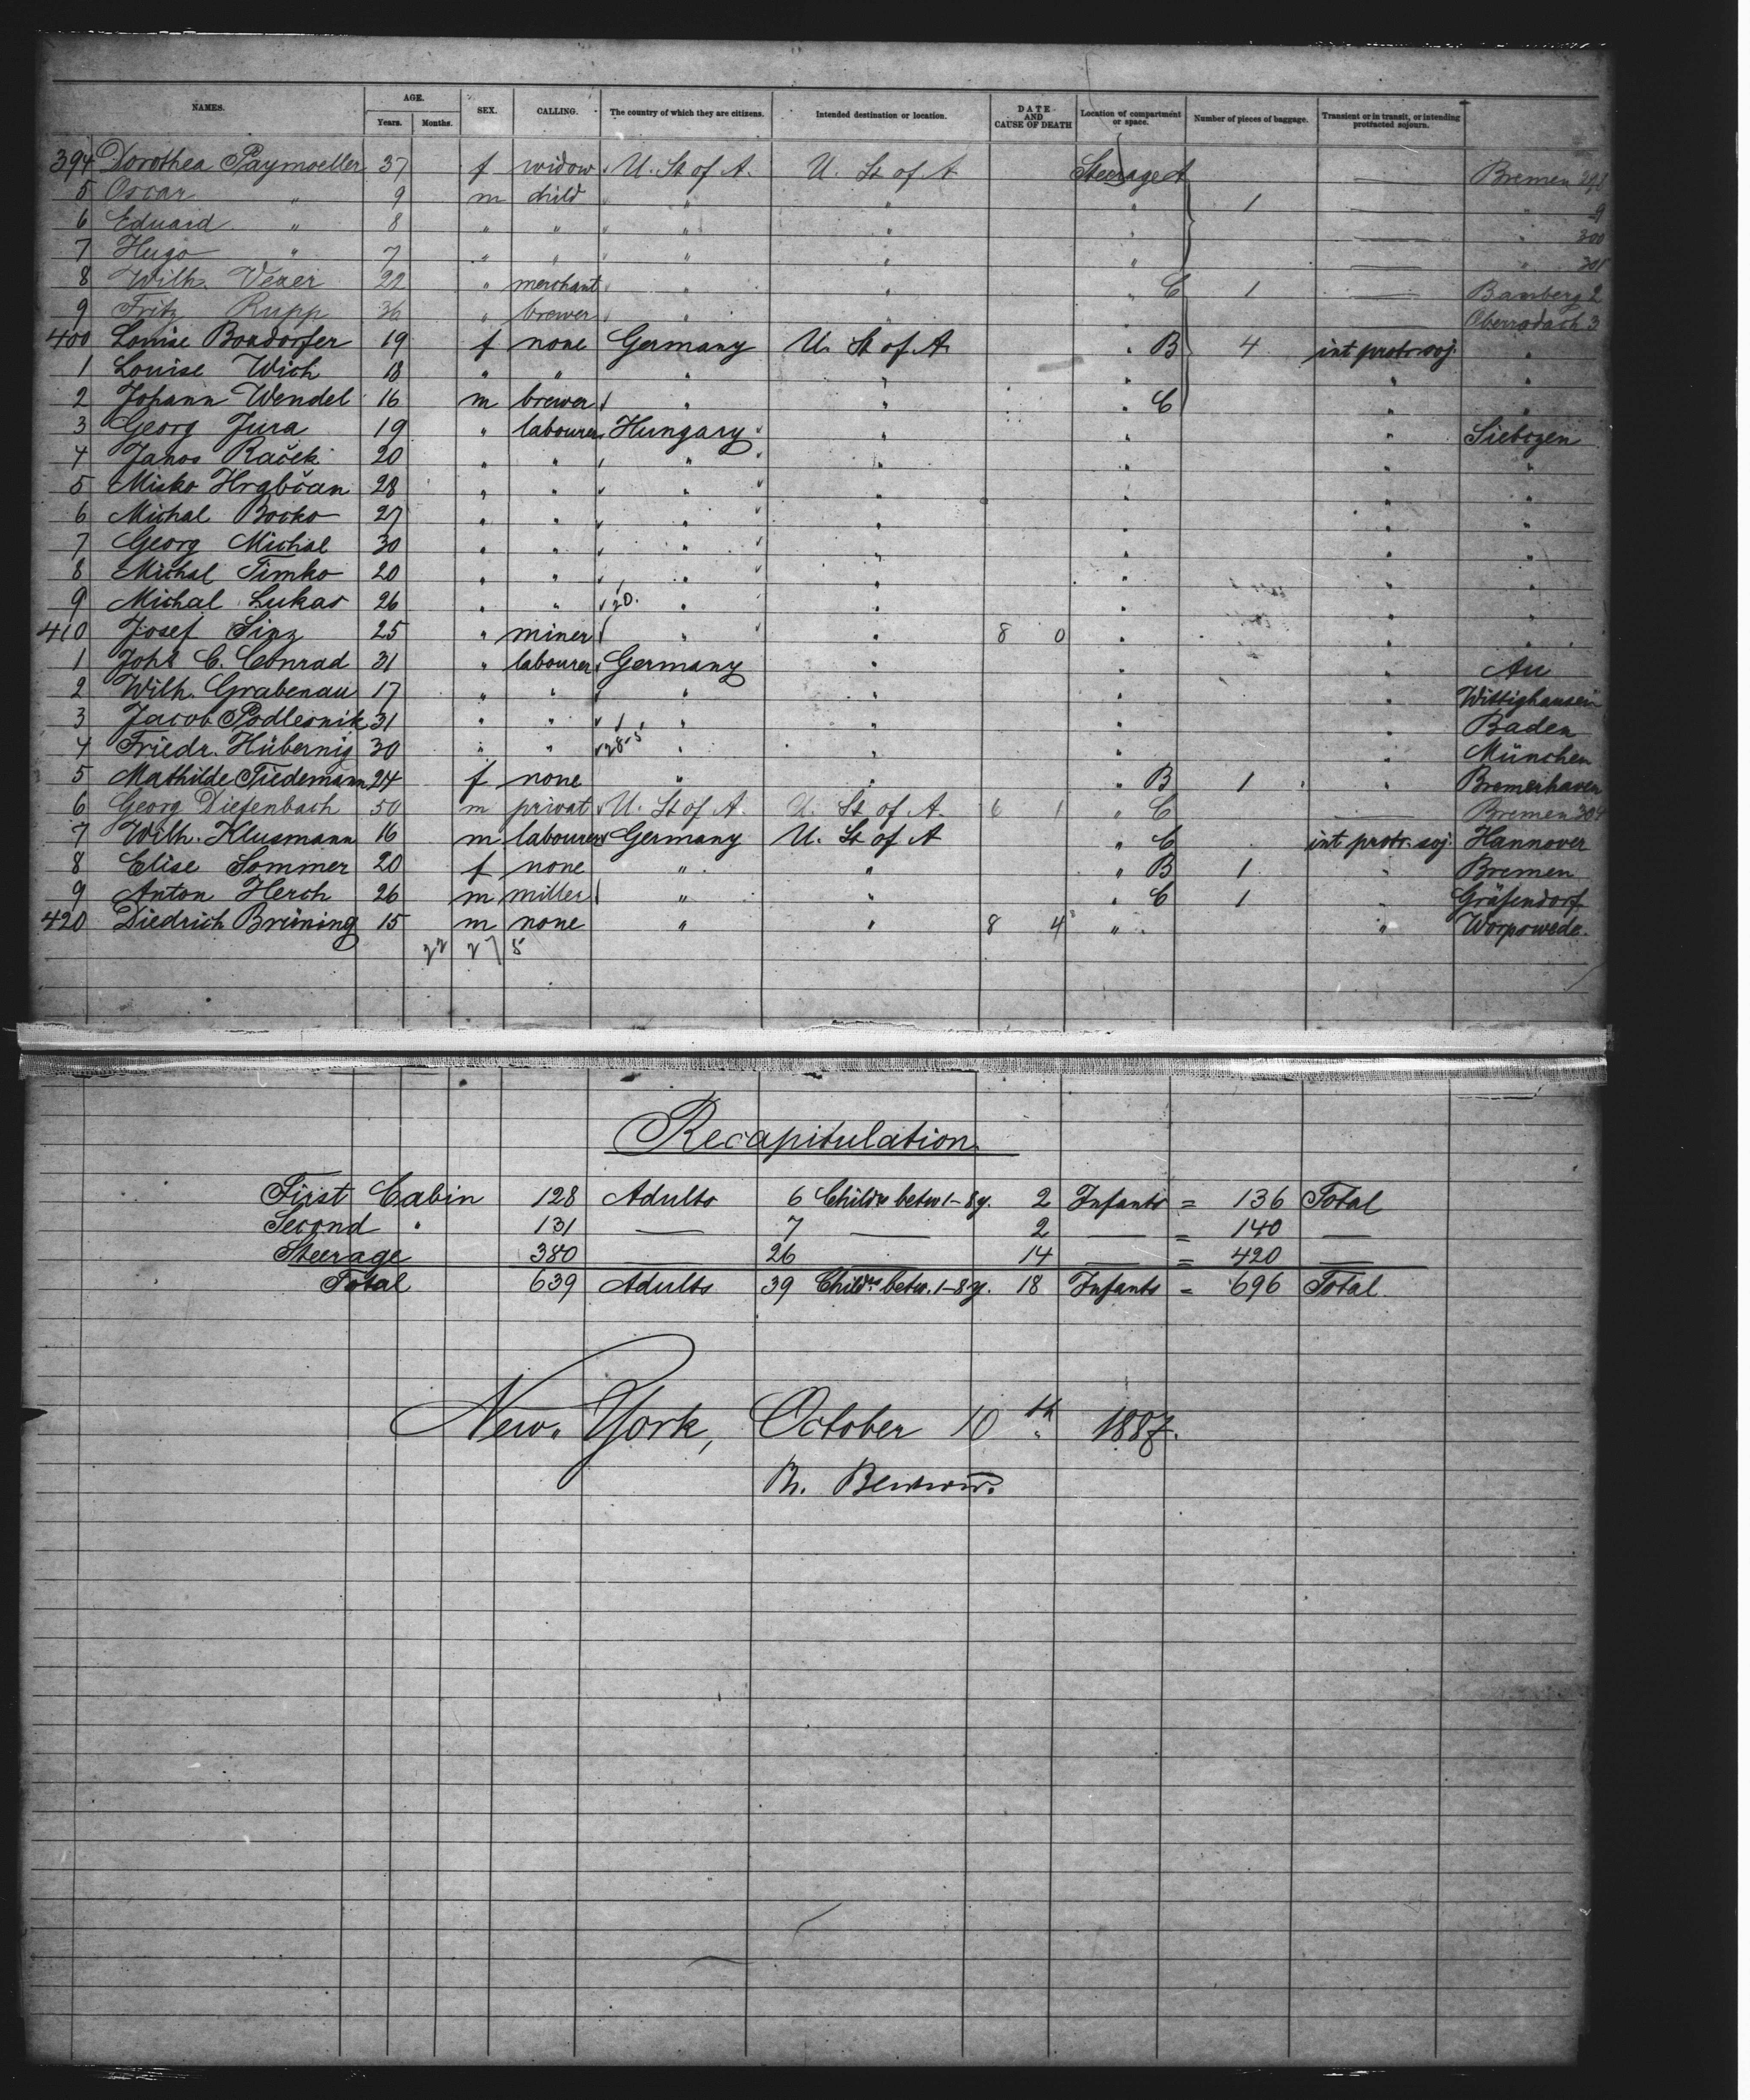 NAMES. AGE. Years. Months. SEX. CALLING. The country of which they are citizens. Intended destination or location. DATE AND CAUSE OF DEATH Location of compartment or space. Number of pieces of baggage. Transient or in transit, or intending protracted sojourn.
394 Dorothea Paymoeller 37 f widow U. St of A. U. St of A Steerage A — Bremen 298
5 Oscar " 9 m child " " " 1 — " 9
6 Eduard " 8 " " " " " — " 300
7 Hugo " 7 " " " " " — " 301
8 Wilh. Vexer 22 " merchant " " " C 1 — Bamberg 2
9 Fritz Rupp 36 " brewer " " " — Oberrodach 3
400 Louise Bondorfer 19 f none Germany U. St of A " B 4 int protr. soj. "
1 Louise Wich 18 " " " " " " "
2 Johann Wendel 16 m brewer " " " C " "
3 Georg Jura 19 " labourer Hungary " " " Siebczen
4 Janos Raček 20 " " " " " " "
5 Misko Hrabčan 28 " " " " " " "
6 Michal Bocko 27 " " " " " " "
7 Georg Michal 30 " " " " " " "
8 Michal Timko 20 " " " " " " "
9 Michal Lukas 26 " " 20. " " " " "
410 Josef Sinz 25 " miner " " 8 0 " " "
1 Johs C. Conrad 31 " labourer Germany " " " Au
2 Wilh. Grabenau 17 " " " " " " Wittighausen
3 Jacob Podlesnik 31 " " " " " " Baden
4 Friedr. Hübernig 30 " " 28-5 " " " " München
5 Mathilde Tiedemann 24 f none " " " B 1 " Bremerhaven
6 Georg Diefenbach 50 m privat U. St of A. U. St of A. 6 1 " C — Bremen 304
7 Wilh. Klusmann 16 m labourer Germany U. St of A " C int protr. soj. Hannover
8 Elise Sommer 20 f none " " " B 1 " Bremen
9 Anton Herch 26 m miller " " " C 1 " Gräfendorf
420 Diedrich Brüning 15 m none " " 8 4 " " Worpswede.
22 27 5
Recapitulation
First Cabin 128 Adults 6 Childrn betw 1-8 y. 2 Infants = 136 Total
Second " 131 — 7 — 2 — = 140 —
Steerage 380 — 26 — 14 — = 420 —
Total 639 Adults 39 Childrn betw. 1-8 y. 18 Infants = 696 Total
New York, October 10th 1887.